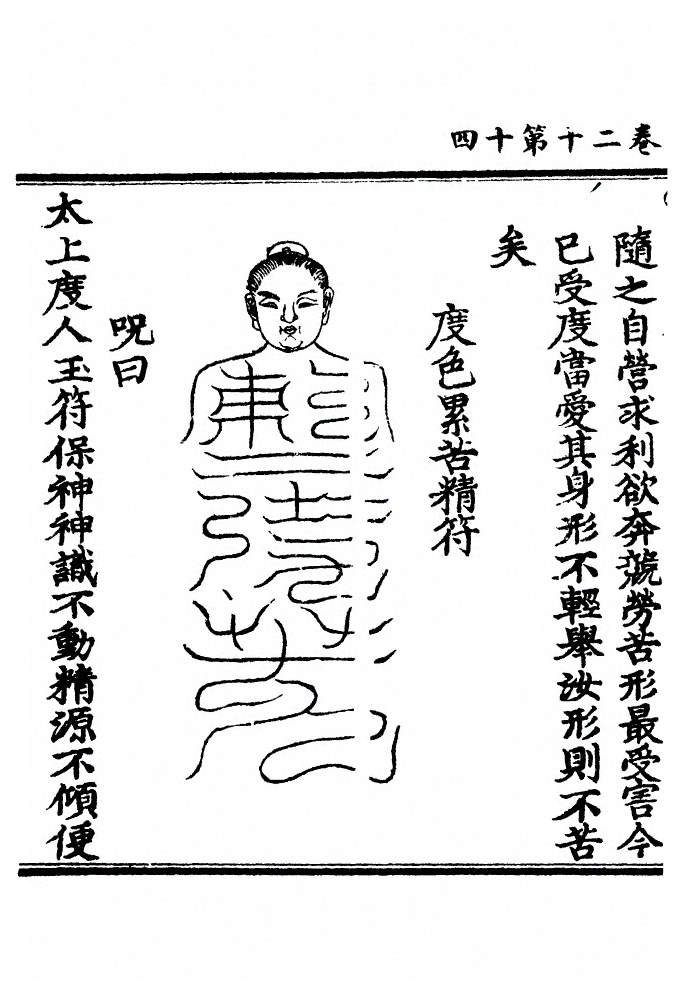 卷二十第十四
隨之自營求利欲奔競勞苦形最受害今
已受度當愛其身形不輕舉汝形則不苦
矣
度色累苦精符
呪曰
太上度人玉符保神神識不動精源不傾便